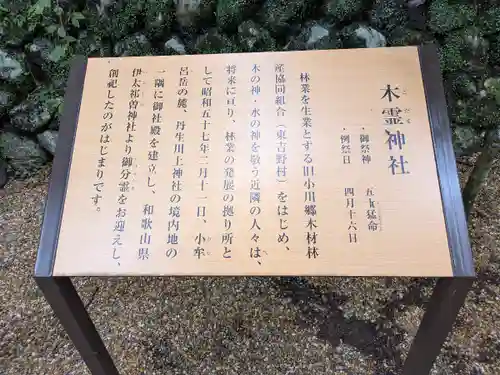 木霊神社
・御祭神 五十猛命
・例祭日 四月十六日
林業を生業とする旧小川郷木材林
産協同組合(東吉野村)をはじめ、
木の神・水の神を敬う近隣の人々は、
将来に亘り、林業の発展の拠り所と
して昭和五十七年二月十一日、小牟
呂岳の麓、丹生川上神社の境内地の
一隅に御社殿を建立し、和歌山県
伊太祁曽神社より御分霊をお迎えし、
創祀したのがはじまりです。